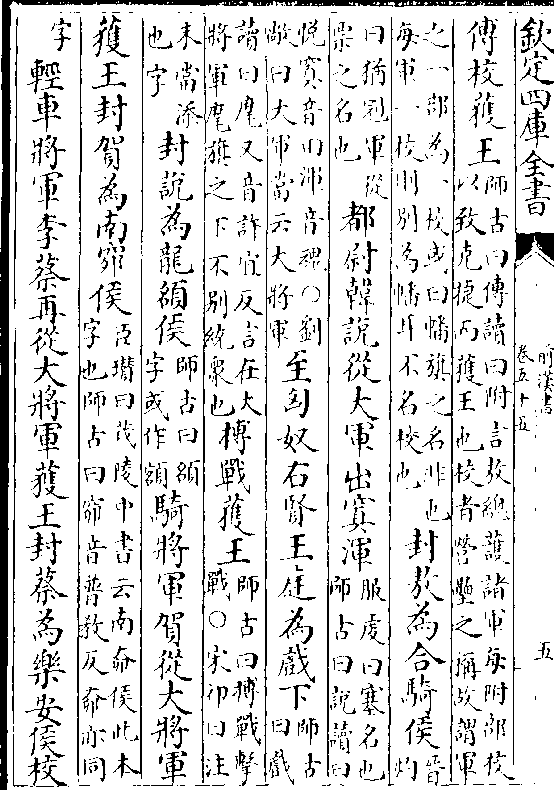 欽定四庫全書
前漢書
卷五十五
五
傅校獲王師古曰傅讀曰附言敖總護諸軍每附部校
以致克捷而獲王也校者營壘之稱故謂軍
之一部為一校或曰幡旗之名非也
每軍一校則別為幡耳不名校也封敖為合騎侯晉灼
曰猶冠軍從
票之名也都尉韓說從大軍出窴渾服虔曰塞名也
師古曰說讀曰
悦窴音田渾音魂○劉
敞曰大軍當云大將軍至匈奴右賢王庭為戲下師古
曰戲
讀曰麾又音許宜反言在大
將軍麾旗之下不別統衆也搏戰獲王師古曰搏戰擊
戰○宋祁曰注
末當添
也字封說為龍頟侯師古曰頟
字或作額騎將軍賀從大將軍
獲王封賀為南窌侯臣瓚曰茂陵中書云南奅侯此本
字也師古曰窌音普教反奅亦同
字輕車將軍李蔡再從大將軍獲王封蔡為樂安侯校